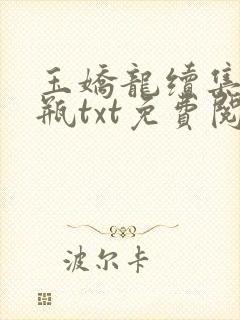 玉嬌龍續集
瓶txt免費閱
波尔卡